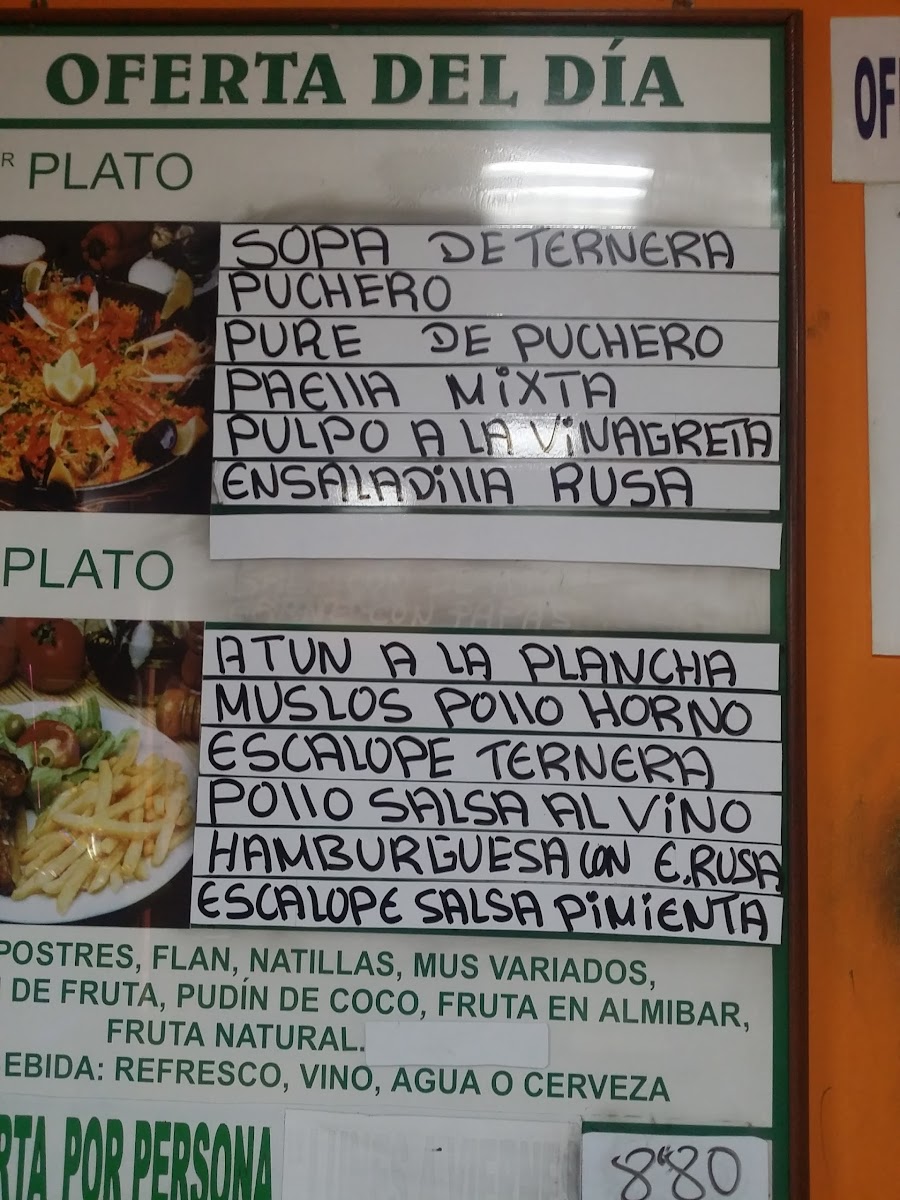 OFERTA DEL DÍA
OF
R PLATO
SOPA DE TERNERA
PUCHERO
PURE DE PUCHERO
PAEllA MiXTA
PULPO A LA ViNAGRETA
ENSALADillA RUSA
PLATO
CON PAPAS
ATUN A LA PLANCHA
MUSLOS POllO HORNO
ESCALOPE TERNERA
POllO SALSA AL ViNO
HAMBURGUESA CON E.RUSA
ESCALOPE SALSA PiMiENTA
POSTRES, FLAN, NATILLAS, MUS VARIADOS,
DE FRUTA, PUDÍN DE COCO, FRUTA EN ALMIBAR,
FRUTA NATURAL.
EBIDA: REFRESCO, VINO, AGUA O CERVEZA
RTA POR PERSONA
8"80